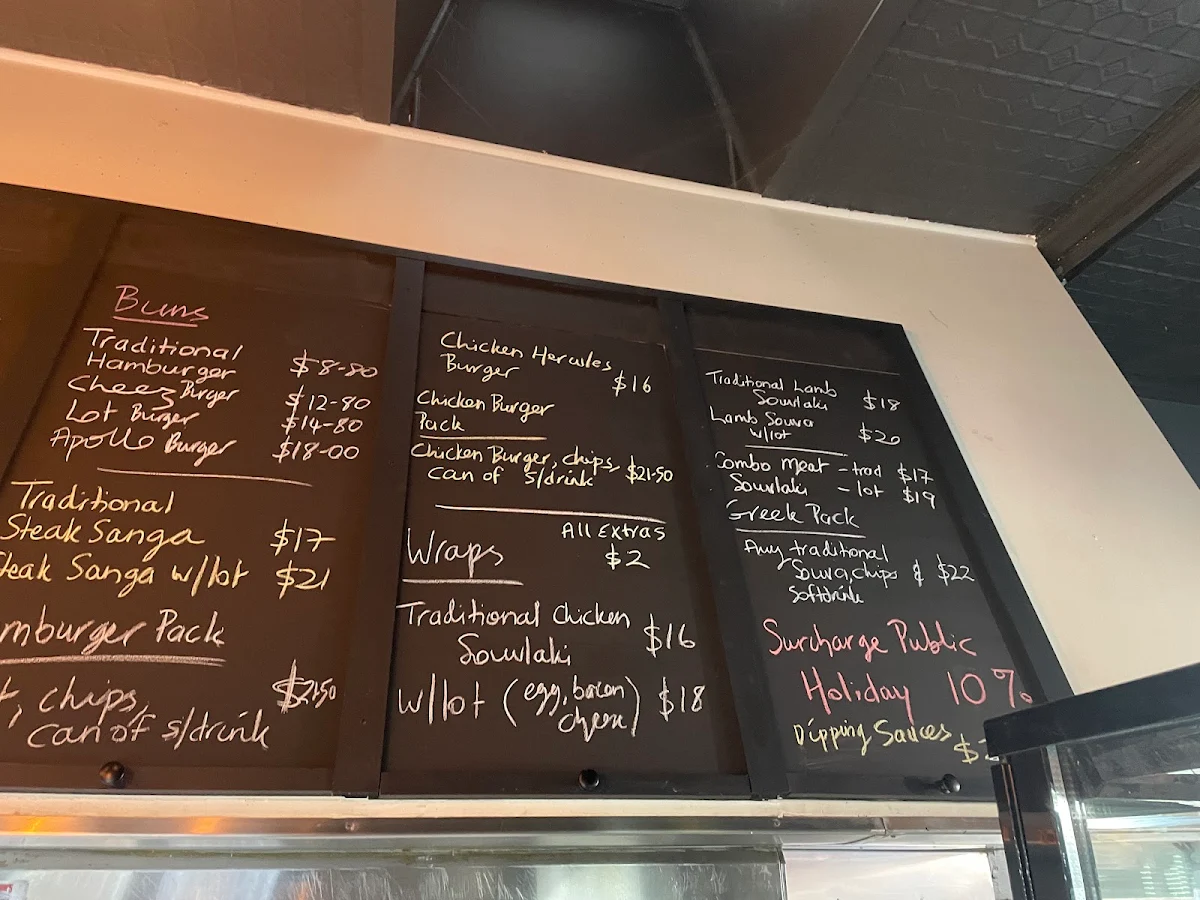 Buns
Traditional
Hamburger $8-80
Cheez Burger $12-80
Lot Burger $14-80
Apollo Burger $18-00
Traditional
Steak Sanga $17
Steak Sanga w/lot $21
mburger Pack
t, chips, $21-50
can of s/drink
Chicken Hercules
Burger $16
Chicken Burger
Pack
Chicken Burger, chips,
can of s/drink $21-50
All Extras
Wraps $2
Traditional Chicken
Souvlaki $16
w/lot (egg, bacon
cheese) $18
Traditional Lamb
Souvlaki $18
Lamb Souva
w/lot $20
Combo Meat - trad $17
Souvlaki - lot $19
Greek Pack
Any traditional
Souva, chips & $22
Softdrink
Surcharge Public
Holiday 10%
Dipping Sauces
$